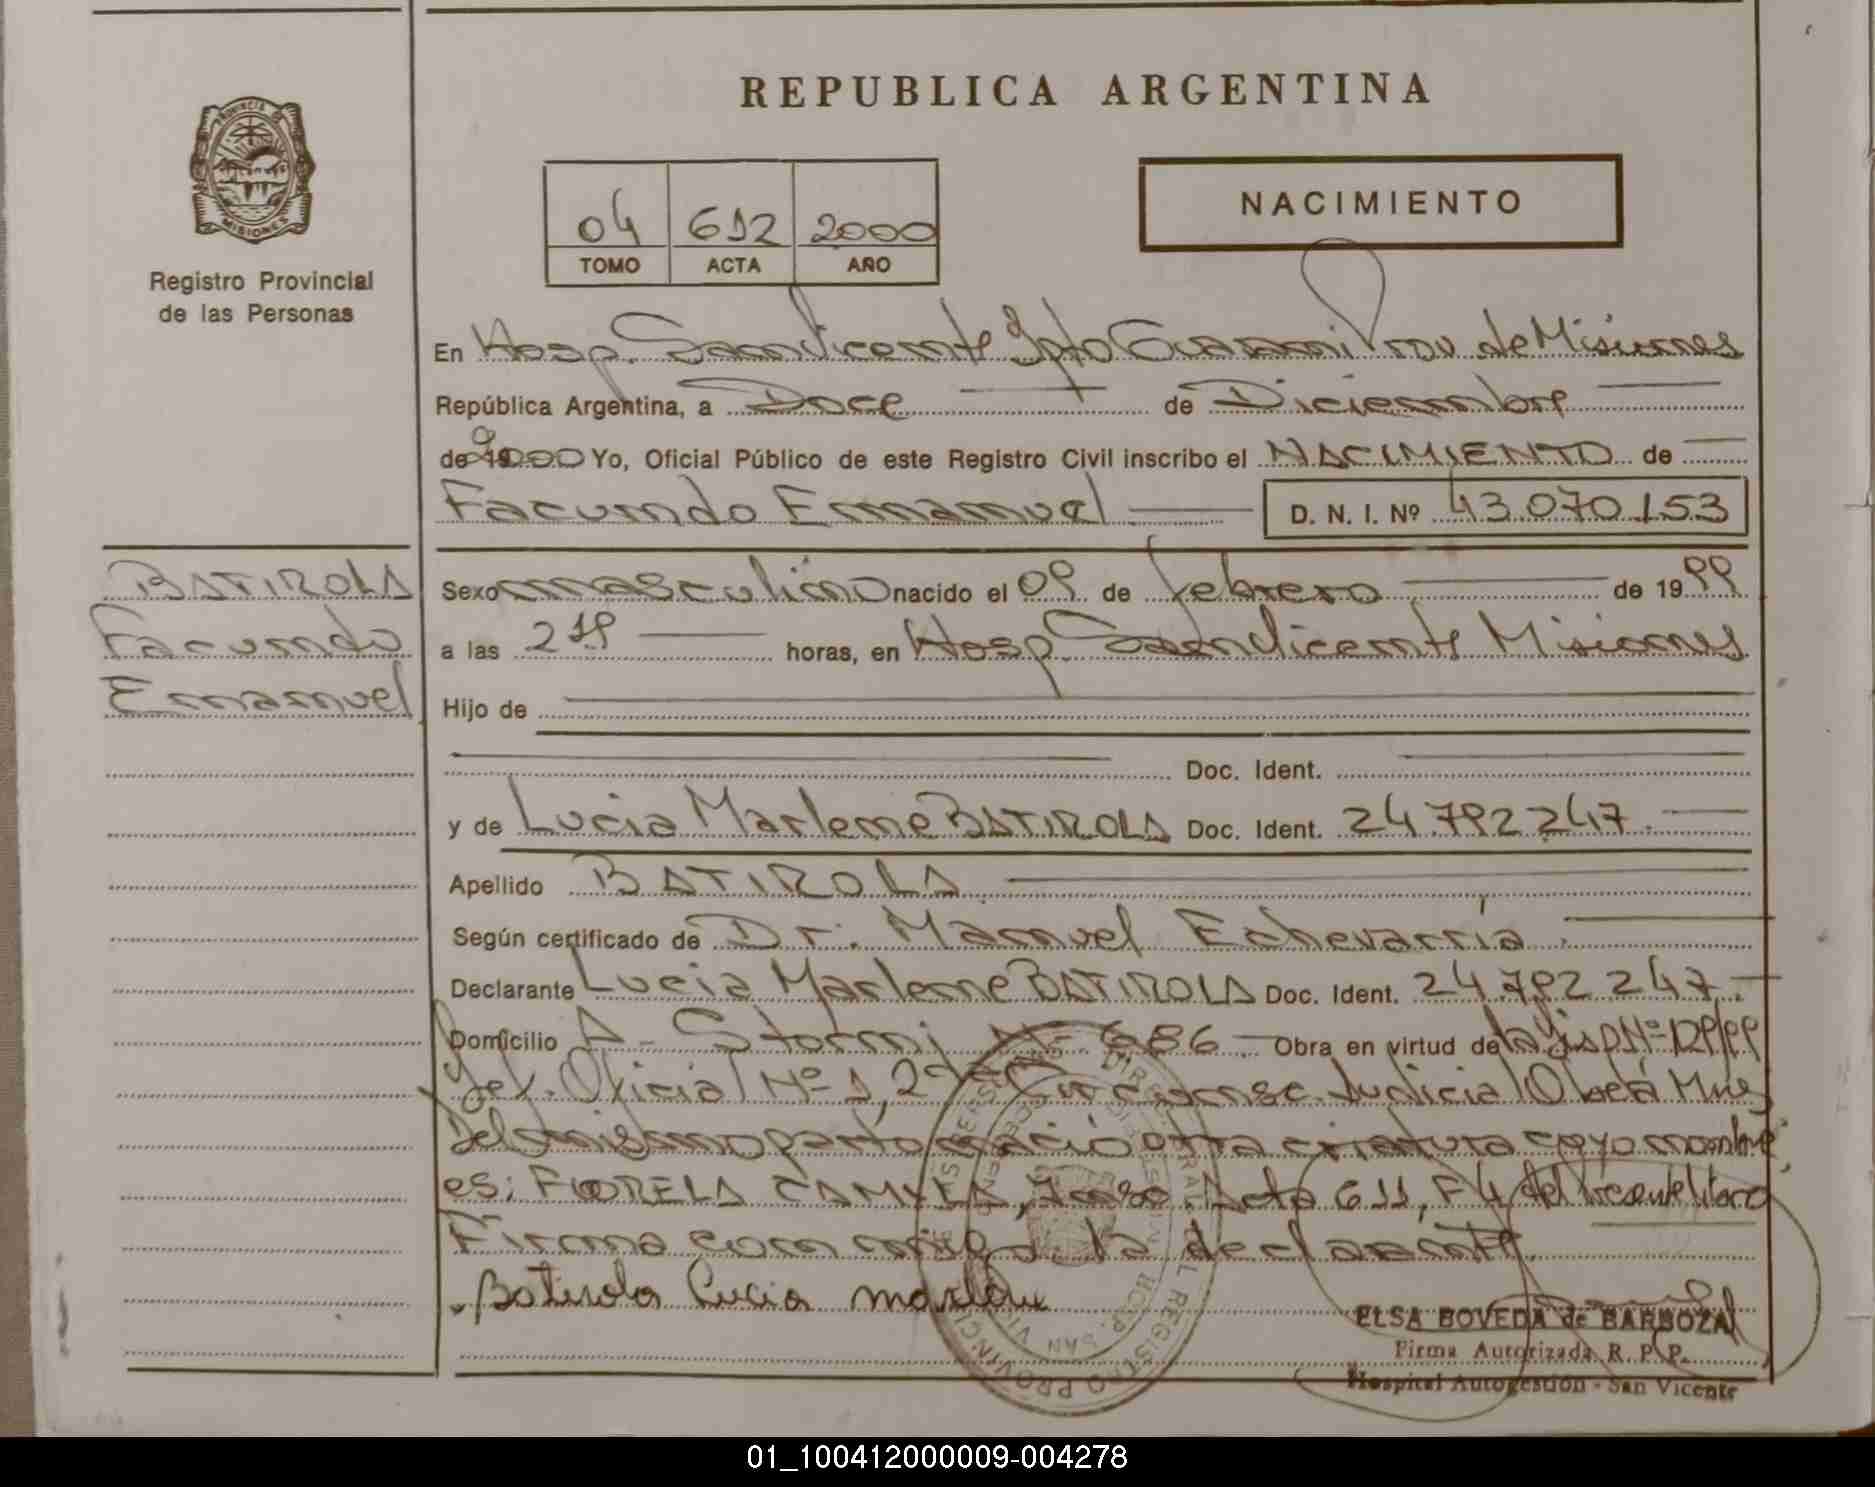 REPUBLICA ARGENTINA
PROVINCIA
MISIONES
Registro Provincial
de las Personas
04 612 2000
TOMO ACTA AÑO
NACIMIENTO
En Hosp. San Vicente Dpto Guarani Prov. de Misiones
República Argentina, a Doce de Diciembre
de 2000 Yo, Oficial Público de este Registro Civil inscribo el NACIMIENTO de
Facundo Emanuel D. N. I. Nº 43.070.153
BATIROLA
Facundo
Emanuel
Sexo masculino nacido el 09 de febrero de 1999
a las 219 horas, en Hosp San Vicente Misiones
Hijo de
Doc. Ident.
y de Lucia Marlene BATIROLA Doc. Ident. 24.792.247.
Apellido BATIROLA
Según certificado de Dr. Manuel Echevarría.
Declarante Lucia Marlene BATIROLA Doc. Ident. 24.792.247.
Domicilio A. Storni Nº 686 Obra en virtud de la Nº 129/99
Def. Oficial Nº 1, 2da Circunsc. Judicial Oberá Mnes
Del mismo parto nació otra criatura cuyo nombre
es: FIORELA CAMILA, Acta 611, F 4 del
Firma conmigo la declarante.
Batirola Lucia marlene
DIREC. GENERAL REGISTRO PROVINCIAL
HOSP. SAN VICENTE
ELSA BOVEDA de BARBOZA
Firma Autorizada R. P. P.
Hospital Autogestión - San Vicente
01_100412000009-004278